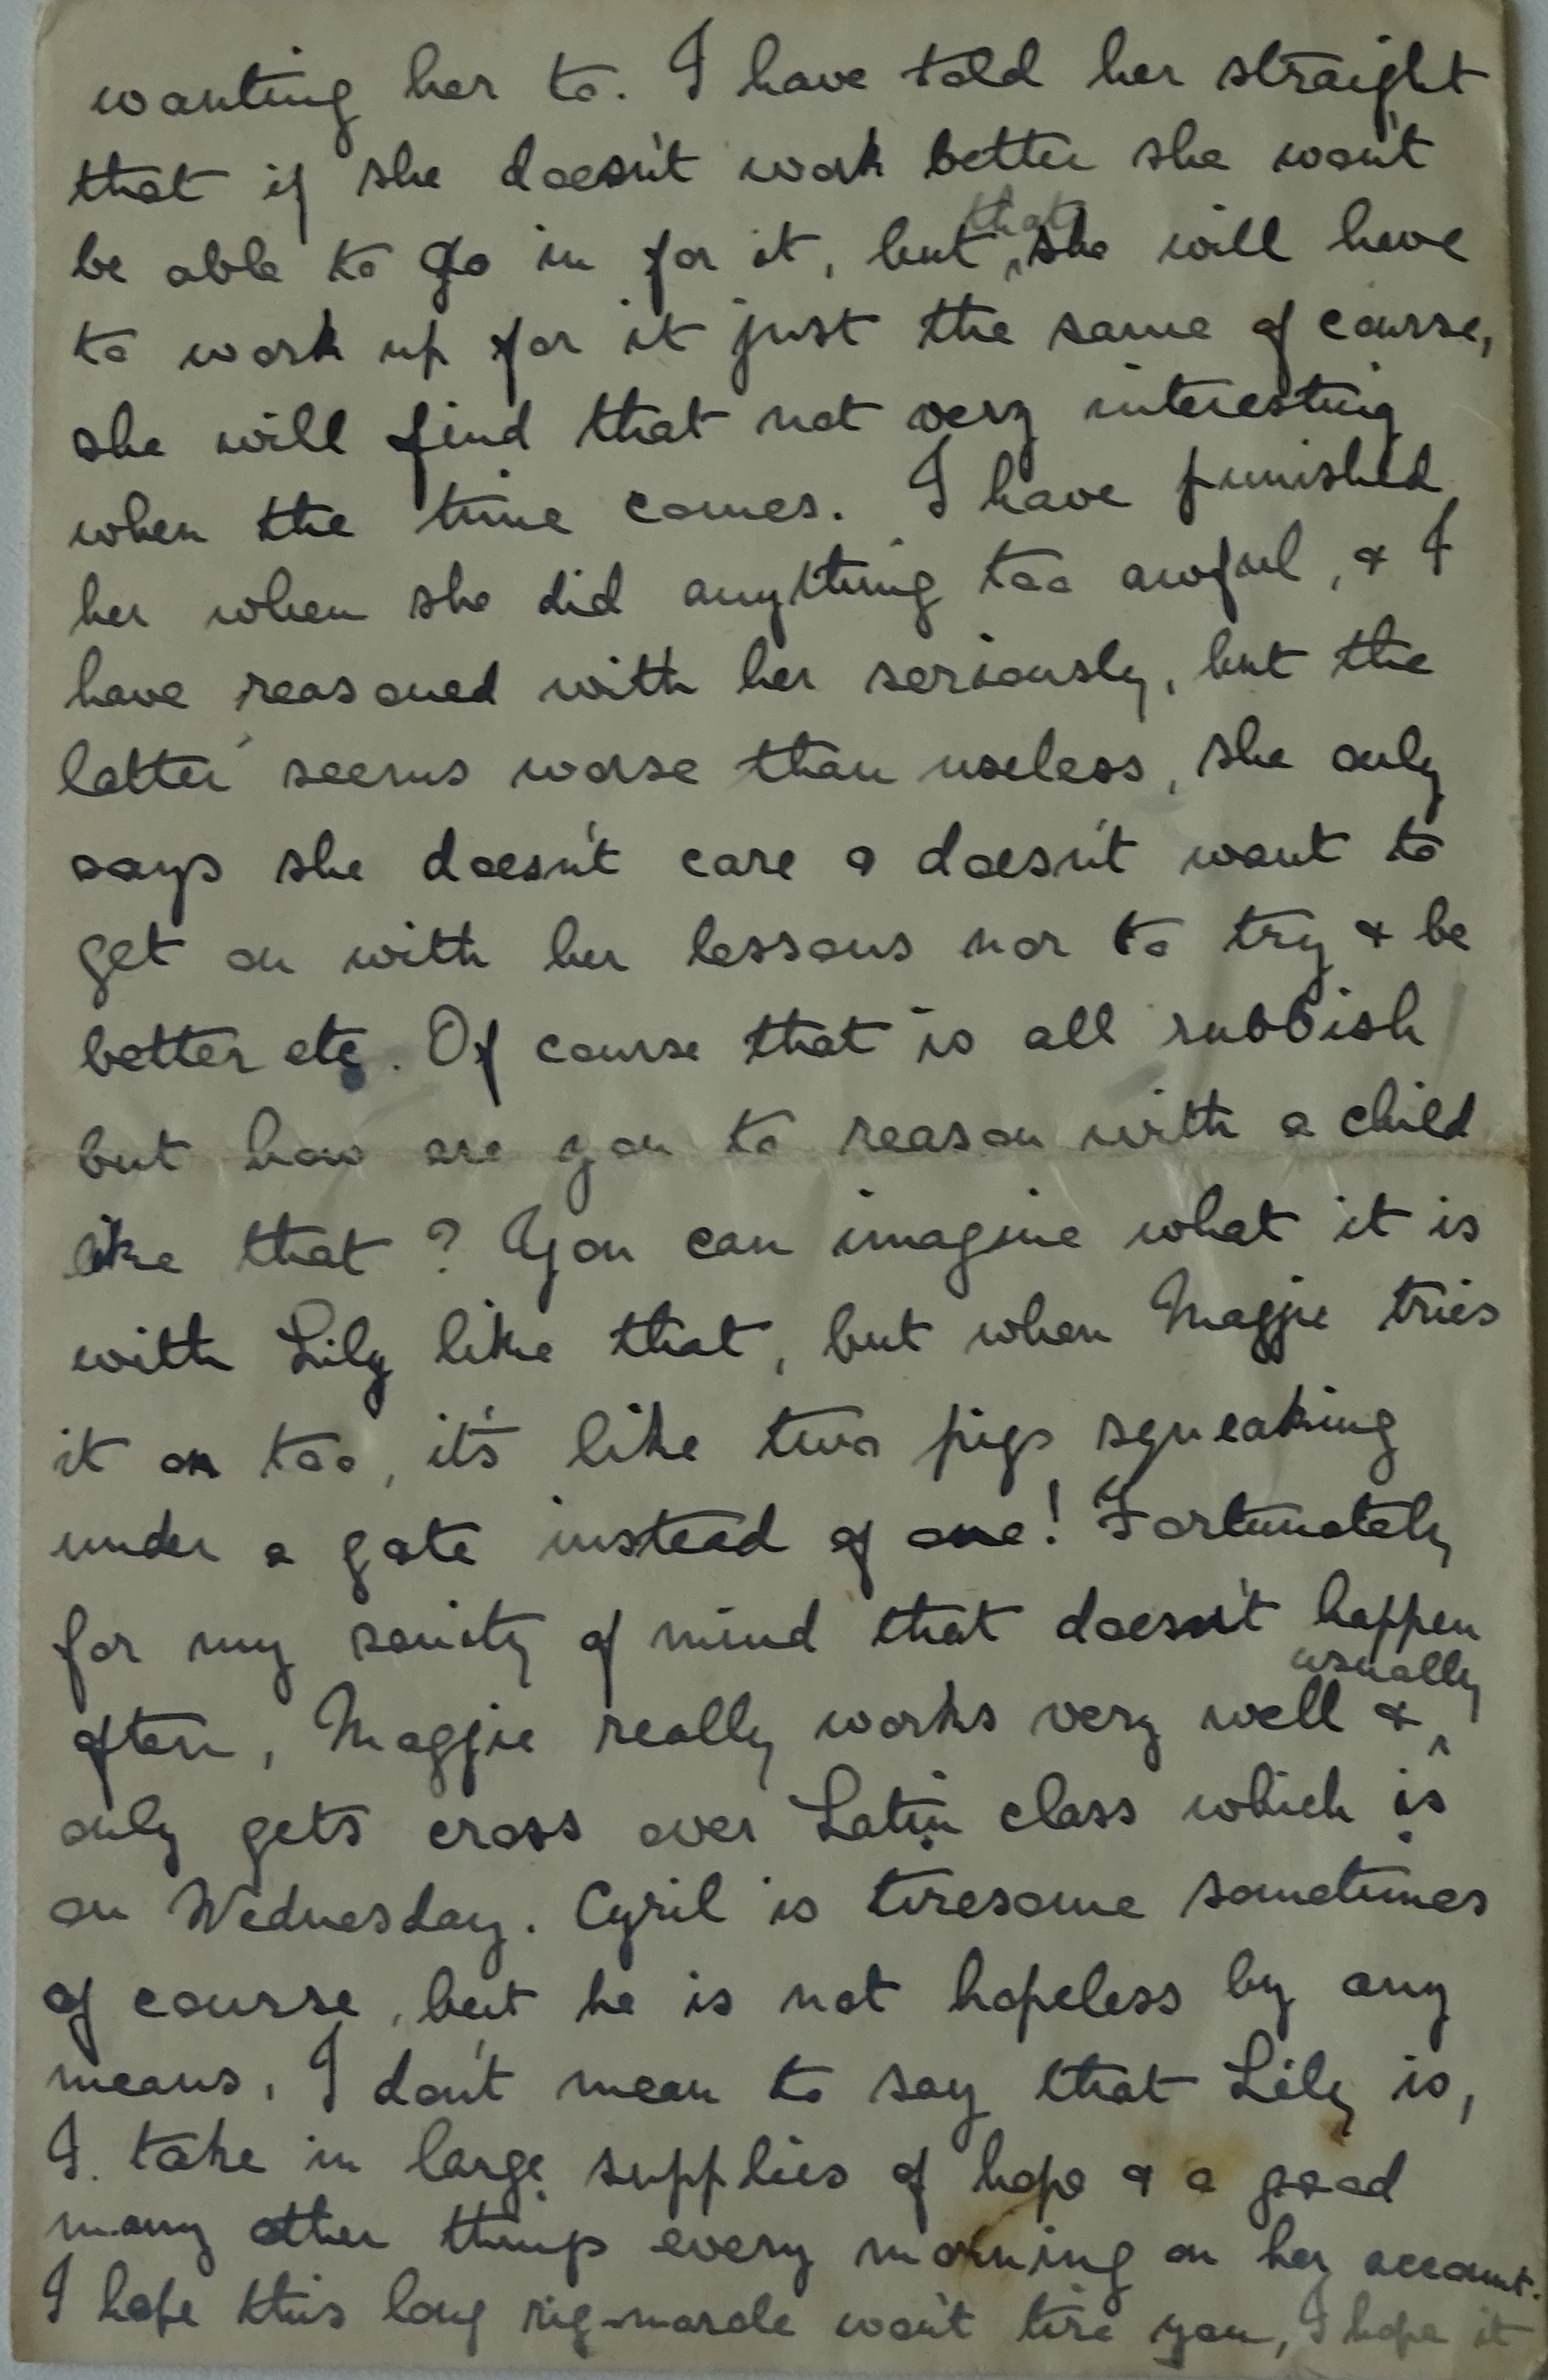 wanting her to. I have told her straight
that if she doesn't work better she won't
be able to go in for it, but that she will have
to work up for it just the same of course,
she will find that not very interesting
when the time comes. I have punished
her when she did anything too awful, & I
have reasoned with her seriously, but the
latter seems worse than useless, she only
says she doesn't care & doesn't want to
get on with her lessons nor to try & be
better etc. Of course that is all rubbish
but how are you to reason with a child
like that? You can imagine what it is
with Lily like that, but when Maggie tries
it on too, it's like two pigs squeaking
under a gate instead of one! Fortunately
for my sanity of mind that doesn't happen
often, Maggie really works very well & usually
only gets cross over Latin class which is
on Wednesday. Cyril is tiresome sometimes
of course, but he is not hopeless by any
means, I don't mean to say that Lily is,
I take in large supplies of hope & a good
many other things every morning on her account.
I hope this long rig-marole won't tire you, I hope it